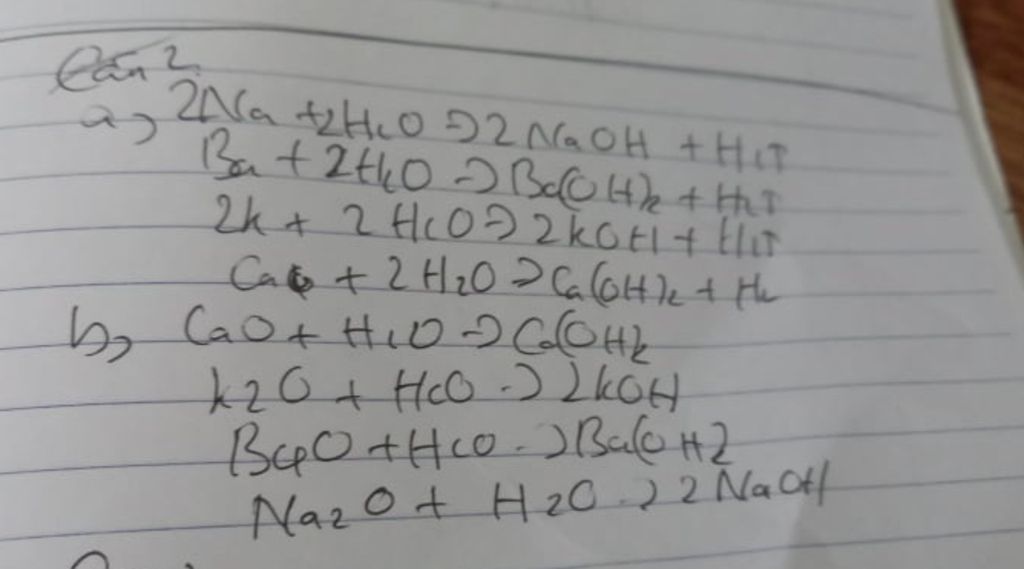 Câu 2
a, 2Na + 2H₂O → 2NaOH + H₂↑
Ba + 2H₂O → Ba(OH)₂ + H₂↑
2K + 2H₂O → 2KOH + H₂↑
Ca + 2H₂O → Ca(OH)₂ + H₂
b, CaO + H₂O → Ca(OH)₂
K2O + H₂O → 2KOH
BaO + H₂O → Ba(OH)2
Na₂O + H₂O → 2NaOH